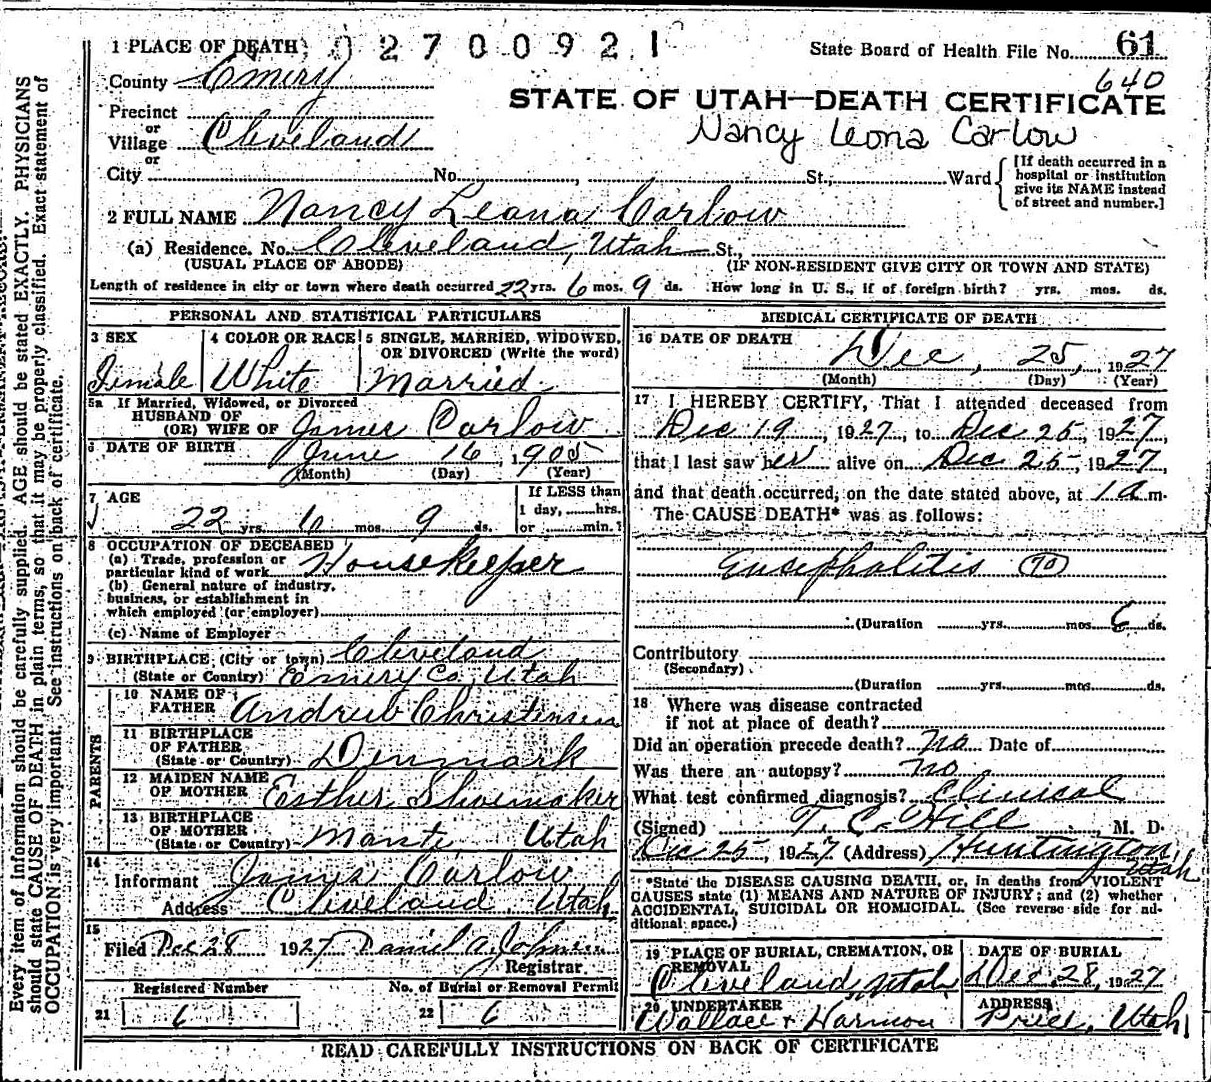 1 PLACE OF DEATH 02700921 State Board of Health File No. 61
640
County Emery
STATE OF UTAH—DEATH CERTIFICATE
Precinct
or
Village Cleveland
Nancy Leona Carlow
or
City No. , St., Ward
[If death occurred in a
hospital or institution
give its NAME instead
of street and number.]
2 FULL NAME Nancy Leona Carlow
(a) Residence. No. Cleveland, Utah St.,
(USUAL PLACE OF ABODE) (IF NON-RESIDENT GIVE CITY OR TOWN AND STATE)
Length of residence in city or town where death occurred 22 yrs. 6 mos. 9 ds. How long in U. S., if of foreign birth? yrs. mos. ds.
PERSONAL AND STATISTICAL PARTICULARS
3 SEX
Female
4 COLOR OR RACE
White
5 SINGLE, MARRIED, WIDOWED,
OR DIVORCED (Write the word)
Married
5a If Married, Widowed, or Divorced
HUSBAND OF
(OR) WIFE OF James Carlow
6 DATE OF BIRTH June 16, 1905
(Month) (Day) (Year)
7 AGE
22 yrs. 6 mos. 9 ds.
If LESS than
1 day, hrs.
or min.?
8 OCCUPATION OF DECEASED
(a) Trade, profession or
particular kind of work Housekeeper
(b) General nature of industry,
business, or establishment in
which employed (or employer)
(c) Name of Employer
9 BIRTHPLACE (City or town) Cleveland
(State or Country) Emery Co. Utah
PARENTS
10 NAME OF
FATHER Andrew Christensen
11 BIRTHPLACE
OF FATHER
(State or Country) Denmark
12 MAIDEN NAME
OF MOTHER Esther Shoemaker
13 BIRTHPLACE
OF MOTHER
(State or Country) Manti Utah
14
Informant James Carlow
Address Cleveland, Utah
15
Filed Dec 28 1927 Daniel A. Johnson
Registrar.
Registered Number No. of Burial or Removal Permit
21 6 22 6
MEDICAL CERTIFICATE OF DEATH
16 DATE OF DEATH
Dec, 25, 1927
(Month) (Day) (Year)
17 I HEREBY CERTIFY, That I attended deceased from
Dec 19, 1927, to Dec 25, 1927,
that I last saw her alive on Dec 25, 1927,
and that death occurred, on the date stated above, at 1 a m.
The CAUSE DEATH* was as follows:
Encephalitis
(Duration yrs. mos. 6 ds.
Contributory
(Secondary)
(Duration yrs. mos. ds.
18 Where was disease contracted
if not at place of death?
Did an operation precede death? no Date of
Was there an autopsy? no
What test confirmed diagnosis? Clinical
(Signed) T. C. Hill M. D.
Dec 25, 1927 (Address) Huntington, Utah
*State the DISEASE CAUSING DEATH, or, in deaths from VIOLENT
CAUSES state (1) MEANS AND NATURE OF INJURY; and (2) whether
ACCIDENTAL, SUICIDAL OR HOMICIDAL. (See reverse side for ad-
ditional space.)
19 PLACE OF BURIAL, CREMATION, OR
REMOVAL
Cleveland Utah
DATE OF BURIAL
Dec 28, 1927
20 UNDERTAKER
Wallace & Harmon
ADDRESS
Price, Utah
READ CAREFULLY INSTRUCTIONS ON BACK OF CERTIFICATE
Every item of information should be carefully supplied. AGE should be stated EXACTLY. PHYSICIANS
should state CAUSE OF DEATH in plain terms, so that it may be properly classified. Exact statement of
OCCUPATION is very important. See instructions on back of certificate.